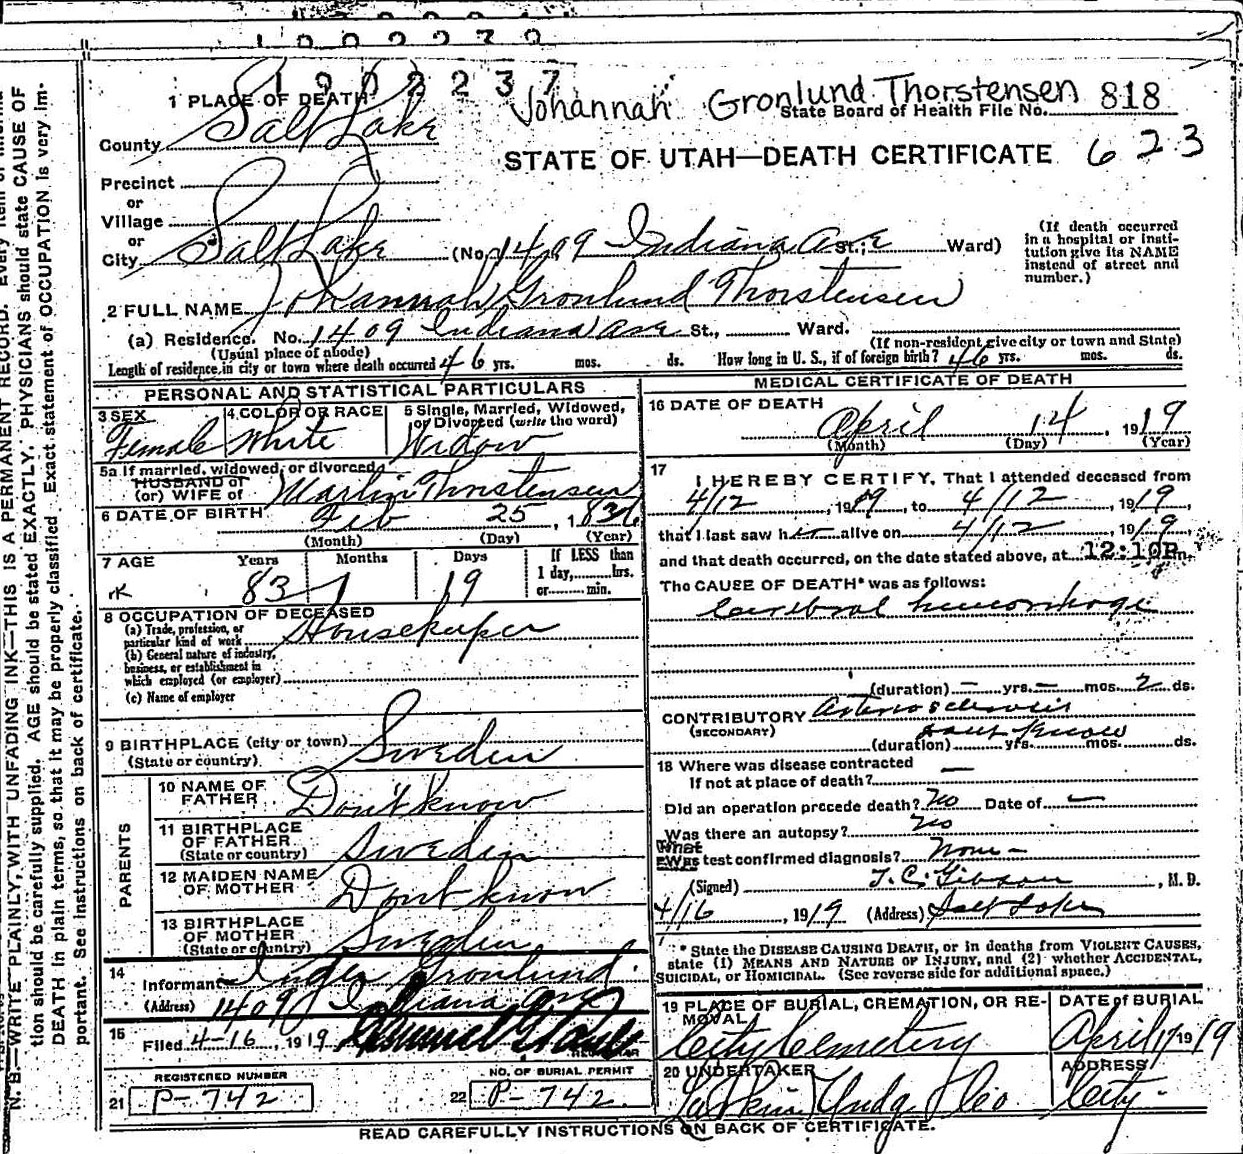 1902237
Johannah Gronlund Thorstensen
1 PLACE OF DEATH
State Board of Health File No. 818
County Salt Lake
STATE OF UTAH—DEATH CERTIFICATE 623
Precinct
or
Village
or
City Salt Lake (No. 1409 Indiana Ave St.; Ward)
(If death occurred in a hospital or insti-
tution give its NAME
instead of street and
number.)
2 FULL NAME Johannah Gronlund Thorstensen
(a) Residence. No. 1409 Indiana Ave St., Ward.
(Usual place of abode) (If non-resident give city or town and State)
Length of residence in city or town where death occurred 46 yrs. mos. ds. How long in U. S., if of foreign birth? 46 yrs. mos. ds.
PERSONAL AND STATISTICAL PARTICULARS
3 SEX Female
4 COLOR OR RACE White
5 Single, Married, Widowed,
or Divorced (write the word)
Widow
5a If married, widowed, or divorced
HUSBAND of
(or) WIFE of Martin Thorstensen
6 DATE OF BIRTH Feb 25, 1836
(Month) (Day) (Year)
7 AGE Years Months Days If LESS than
83 1 19 1 day, hrs.
or min.
8 OCCUPATION OF DECEASED
(a) Trade, profession, or
particular kind of work Housekeeper
(b) General nature of industry,
business, or establishment in
which employed (or employer)
(c) Name of employer
9 BIRTHPLACE (city or town)
(State or country) Sweden
PARENTS
10 NAME OF
FATHER Don't know
11 BIRTHPLACE
OF FATHER
(State or country) Sweden
12 MAIDEN NAME
OF MOTHER Dont know
13 BIRTHPLACE
OF MOTHER
(State or country) Sweden
14
Informant Gronlund
(Address) 1409 Indiana Ave
15
Filed 4-16, 1919
REGISTRAR
REGISTERED NUMBER
21 P-742
NO. OF BURIAL PERMIT
22 P-742
MEDICAL CERTIFICATE OF DEATH
16 DATE OF DEATH
April 14, 1919
(Month) (Day) (Year)
17
I HEREBY CERTIFY, That I attended deceased from
4/12, 1919, to 4/12, 1919,
that I last saw her alive on 4/12, 1919
and that death occurred, on the date stated above, at 12:10P m.
The CAUSE OF DEATH* was as follows:
Cerebral hemorrhage
(duration) – yrs. – mos. 2 ds.
CONTRIBUTORY Arteriosclerosis
(SECONDARY) dont know
(duration) yrs. mos. ds.
18 Where was disease contracted
If not at place of death? —
Did an operation precede death? No Date of —
Was there an autopsy? No
What
test confirmed diagnosis? None -
(Signed) T. C. Gibson, M. D.
4/16, 1919 (Address) Salt Lake
* State the DISEASE CAUSING DEATH, or in deaths from VIOLENT CAUSES,
state (1) MEANS AND NATURE OF INJURY, and (2) whether ACCIDENTAL,
SUICIDAL, or HOMICIDAL. (See reverse side for additional space.)
19 PLACE OF BURIAL, CREMATION, OR RE-
MOVAL
City Cemetery
DATE of BURIAL
April 17 1919
20 UNDERTAKER
ADDRESS
City.
READ CAREFULLY INSTRUCTIONS ON BACK OF CERTIFICATE.
N. B.—WRITE PLAINLY, WITH UNFADING INK—THIS IS A PERMANENT RECORD. Every item of
tion should be carefully supplied. AGE should be stated EXACTLY. PHYSICIANS should state CAUSE OF
DEATH in plain terms, so that it may be properly classified. Exact statement of OCCUPATION is very im-
portant. See instructions on back of certificate.